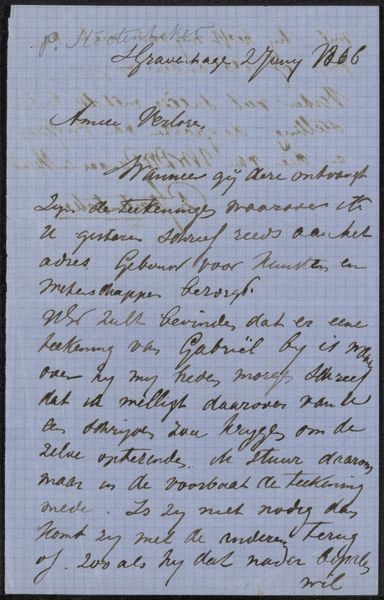 p. Stortenbeker
s'Gravenhage 2 Juny 1866
Amice Verloren
Wanneer gij deze ontvangt
zyn de teekeningen waarover ik
U gisteren schreef reeds aan het
adres Gebouw voor Kunsten en
Wetenschappen bezorgd.
zult bevinden dat er eene
teekening van Gabriël by is waar
over hy my heden morgen schreef
dat ik welligt daarover van U
een schryven zou krygen om de
zelve optezenden. Ik stuur daarom
maar in de voorbaat de teekening
mede. Is zy niet nodig dan
komt zy met de anderen terug
of zoo als hy dat nader bepalen
wil